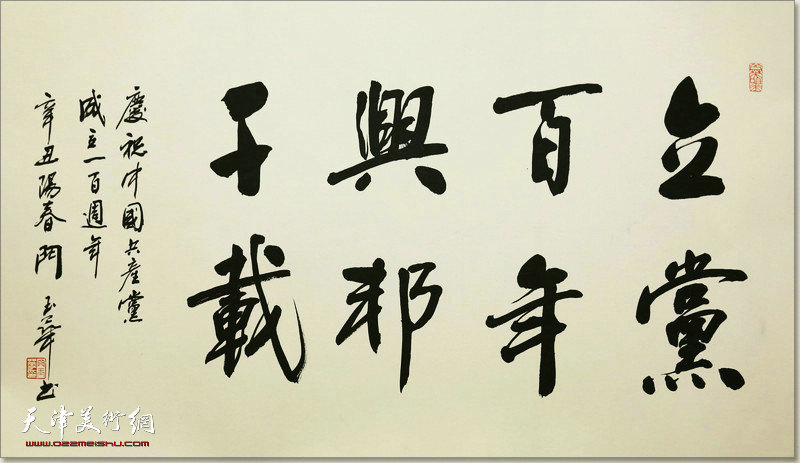 立黨
百年
興邦
千載
慶祝中國共產黨
成立一百週年
辛丑陽春門
書
天津美術網
www.022meishu.com